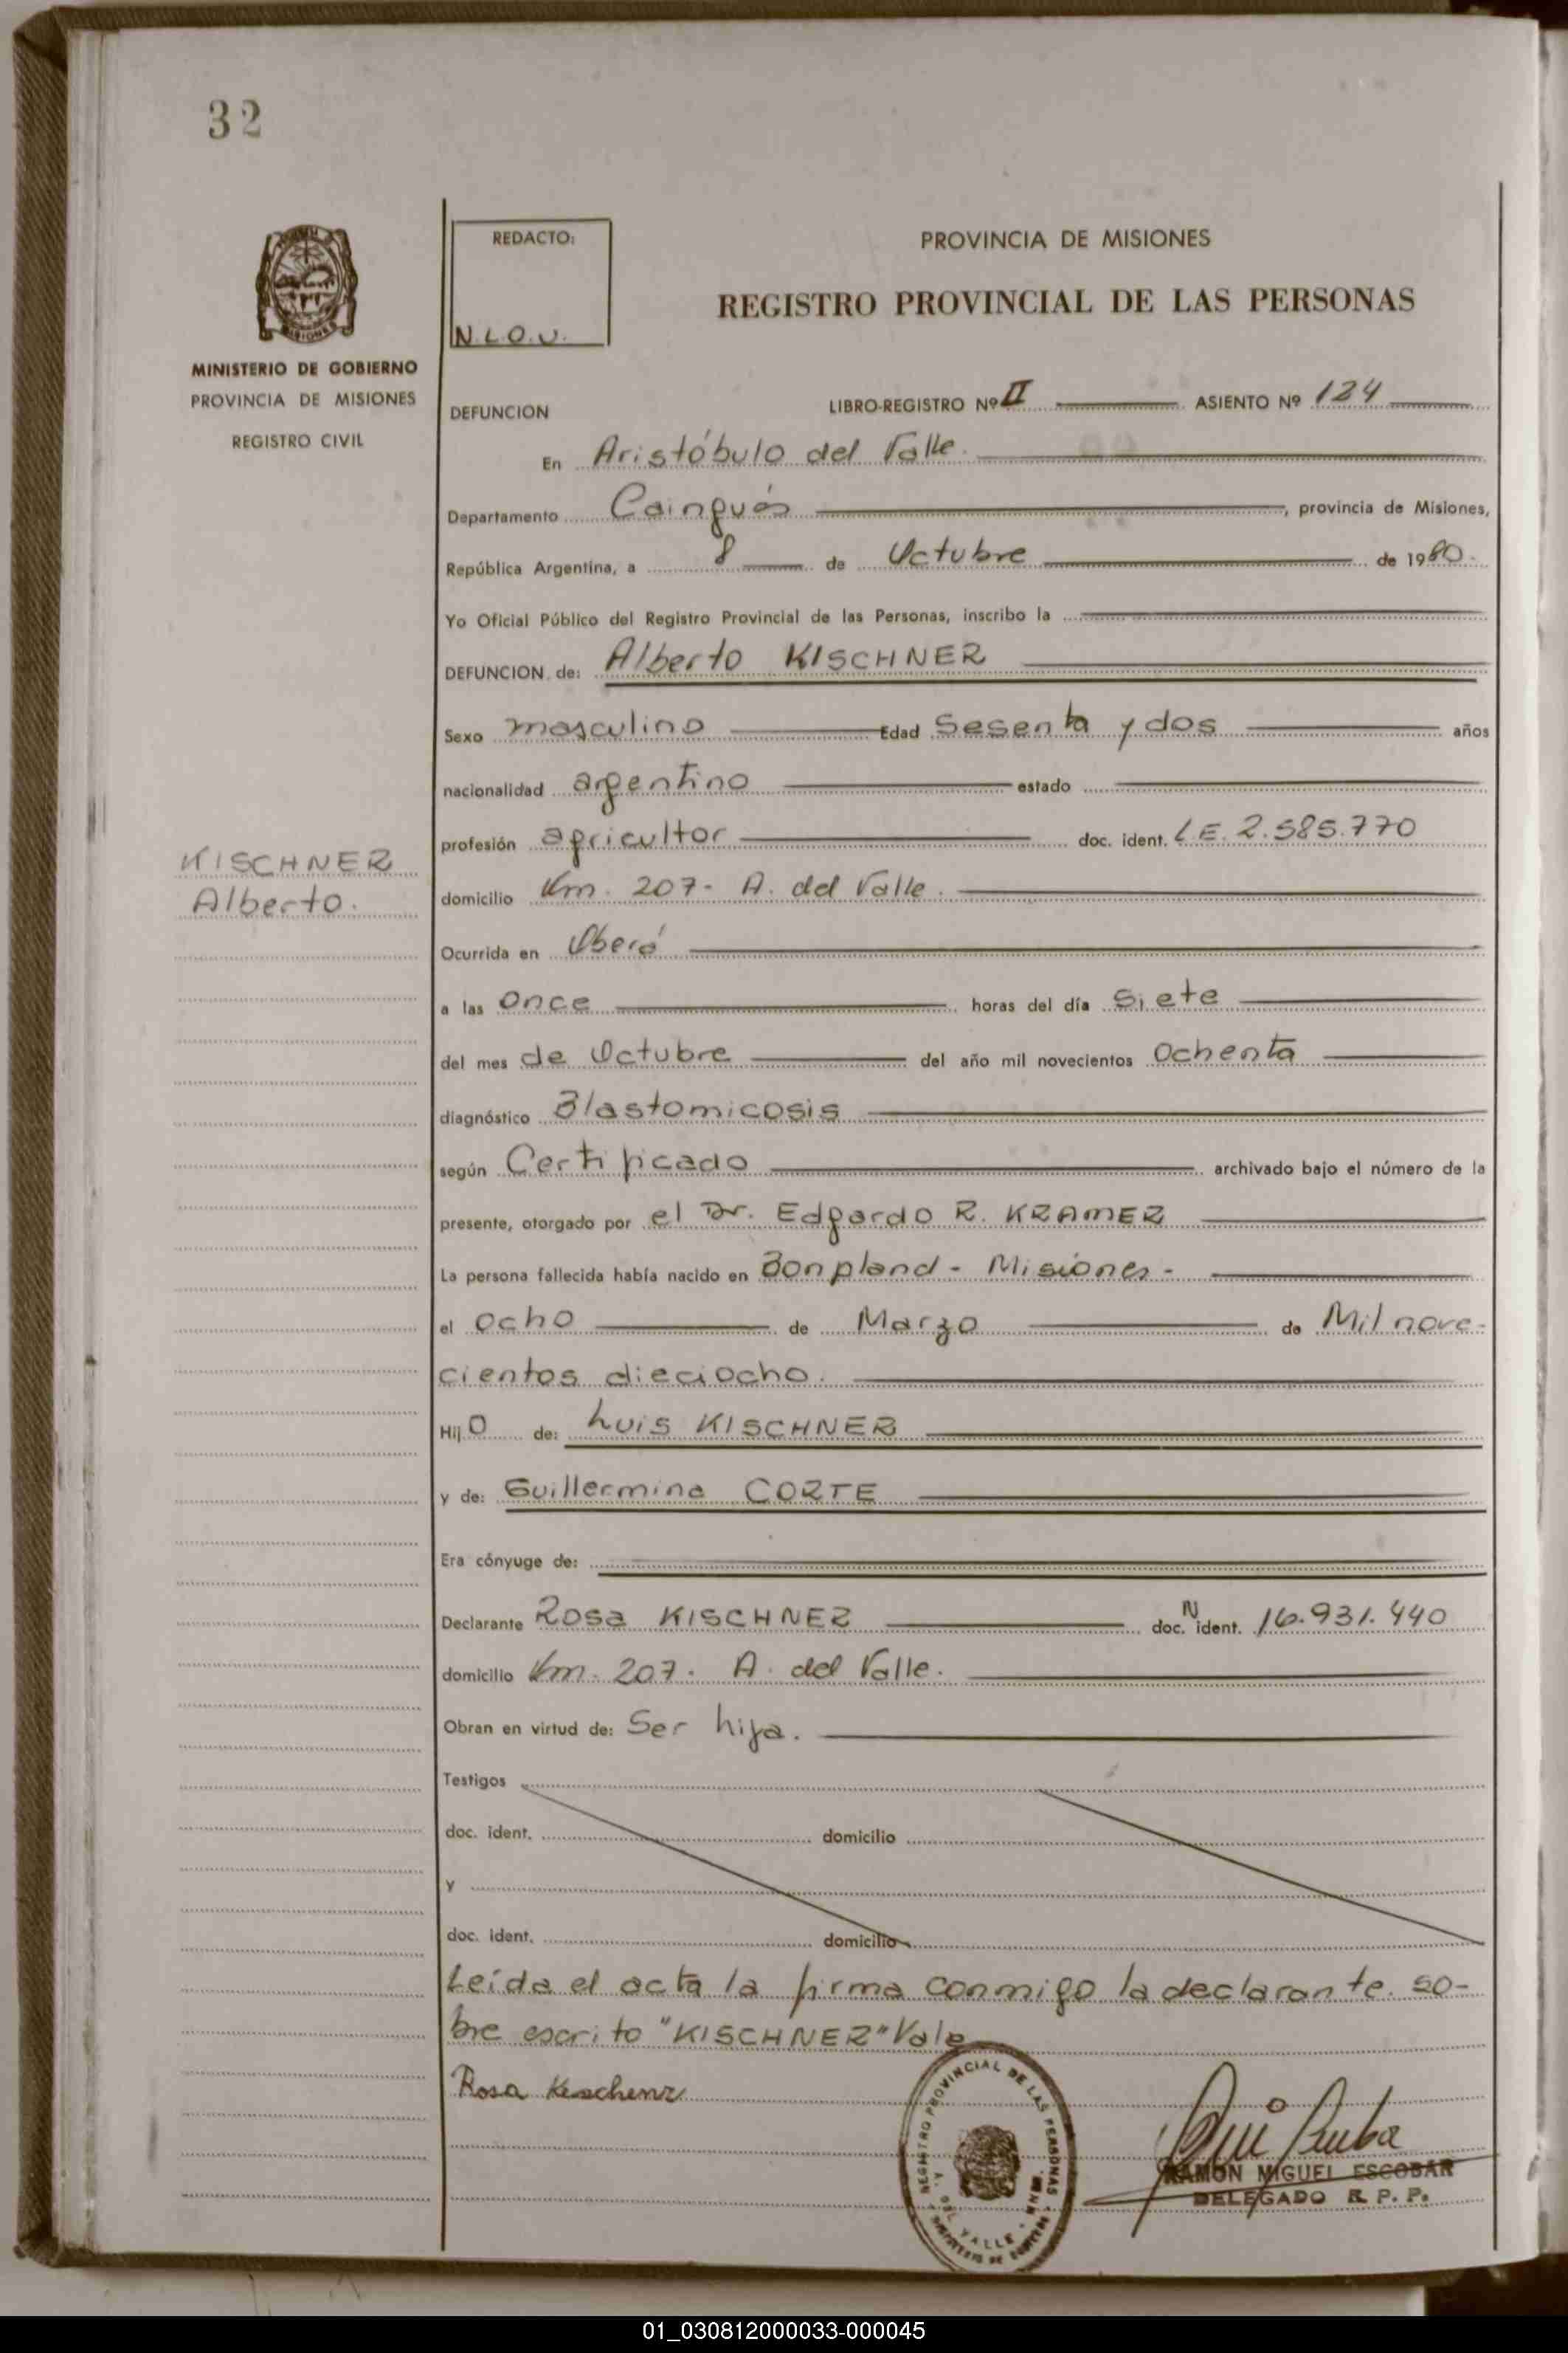 32
MINISTERIO DE GOBIERNO
PROVINCIA DE MISIONES
REGISTRO CIVIL
REDACTO:
N.L.O.V.
PROVINCIA DE MISIONES
REGISTRO PROVINCIAL DE LAS PERSONAS
DEFUNCION LIBRO-REGISTRO Nº II ASIENTO Nº 124
En Aristóbulo del Valle.
Departamento Cainguás, provincia de Misiones,
República Argentina, a 8 de Octubre de 1980.
Yo Oficial Público del Registro Provincial de las Personas, inscribo la
DEFUNCION de: Alberto KISCHNER
Sexo masculino Edad Sesenta y dos años
nacionalidad argentino estado
profesión agricultor doc. ident. L.E. 2.585.770
KISCHNER
Alberto.
domicilio Km. 207- A. del Valle.
Ocurrida en Oberá
a las once horas del día siete
del mes de Octubre del año mil novecientos ochenta
diagnóstico Blastomicosis
según Certificado archivado bajo el número de la
presente, otorgado por el Dr. Edgardo R. KRAMER
La persona fallecida había nacido en Bonpland - Misiones -
el ocho de Marzo de Mil nove-
cientos dieciocho.
Hijo de: Luis KISCHNER
y de: Guillermina CORTE
Era cónyuge de:
Declarante Rosa KISCHNER doc. N ident. 16.931.440
domicilio Km. 207. A. del Valle.
Obran en virtud de: Ser hija.
Testigos
doc. ident. domicilio
y
doc. ident. domicilio
Leída el acta la firma conmigo la declarante. So-
bre escrito "KISCHNER" Vale
Rosa Keschenr
REGISTRO PROVINCIAL DE LAS PERSONAS
A. DEL VALLE
RAMON MIGUEL ESCOBAR
DELEGADO R. P. P.
01_030812000033-000045